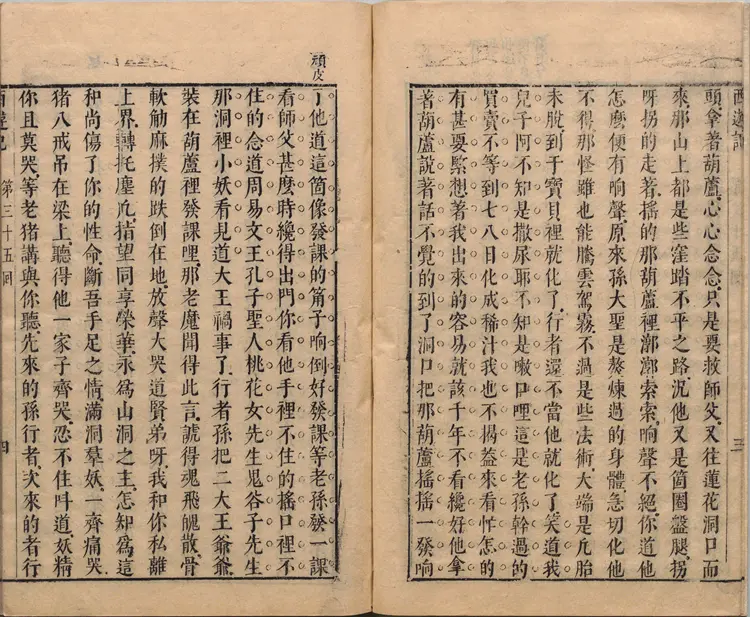 西遊記 三
頭拿著葫蘆心心念念只是要救師父又往蓮花洞口而
來那山上都是些窪踏不平之路況他又是箇圈盤腿拐
呀拐的走著搖的那葫蘆裡漷漷索索响聲不絕你道他
怎麼便有响聲原來孫大聖是熬煉過的身體急切化他
不得那怪雖也能騰雲駕霧不過是些法術大端是凡胎
未脫到于寶貝裡就化了行者還不當他就化了笑道我
兒子阿不知是撒尿耶不知是嗽口哩這是老孫幹過的
買賣不等到七八日化成稀汁我也不揭葢來看忙怎的
有甚要緊想著我出來的容易就該千年不看纔好他拿
著葫蘆說著話不覺的到了洞口把那葫蘆搖搖一發响
頑皮
了他道這箇像發課的筩子响倒好發課等老孫發一課
看師父甚麼時纔得出門你看他手裡不住的搖口裡不
住的念道周易文王孔子聖人桃花女先生鬼谷子先生
那洞裡小妖看見道大王禍事了行者孫把二大王爺爺
裝在葫蘆裡發課哩那老魔聞得此言諕得魂飛魄散骨
軟觔麻撲的跌倒在地放聲大哭道賢弟呀我和你私離
上界轉托塵凡指望同享榮華永爲山洞之主怎知爲這
和尚傷了你的性命斷吾手足之情滿洞羣妖一齊痛哭
猪八戒吊在梁上聽得他一家子齊哭忍不住叫道妖精
你且莫哭等老猪講與你聽先來的孫行者次來的者行
西遊記 第三十五回 四